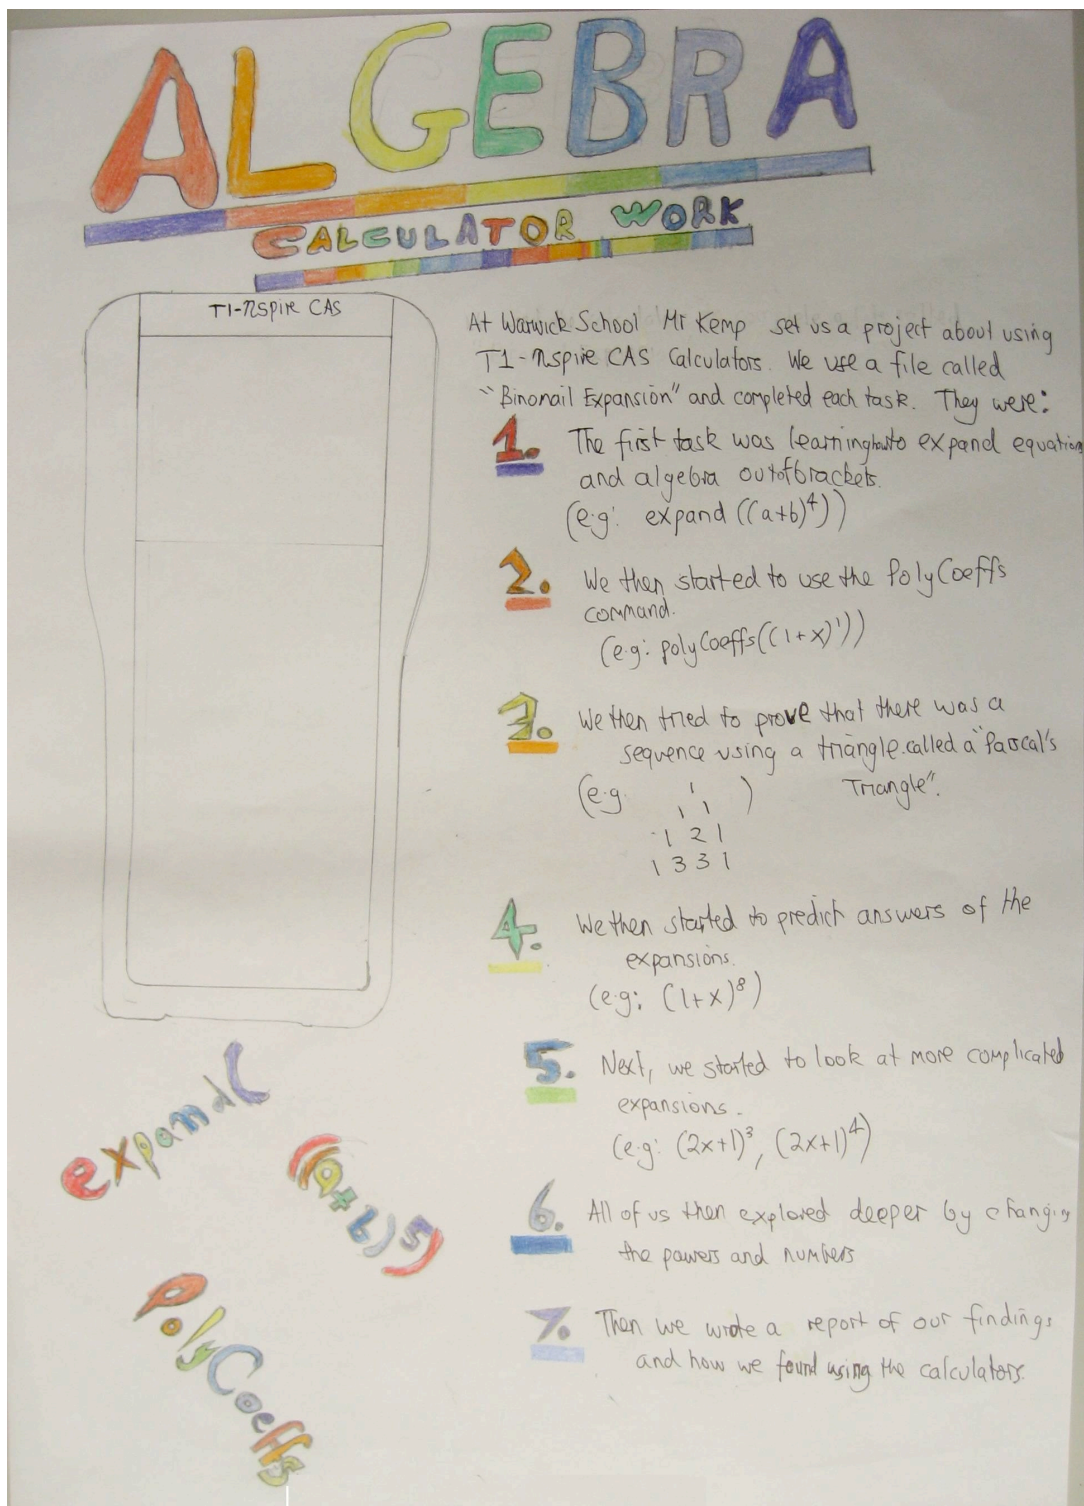 ALGEBRA
CALCULATOR WORK
TI-nspire CAS
At Warwick School Mr Kemp set us a project about using
TI-nspire CAS Calculators. We use a file called
"Binomail Expansion" and completed each task. They were:
1. The first task was learning how to expand equations
and algebra out of brackets.
(e.g: expand ((a+b)⁴))
2. We then started to use the PolyCoeffs
command.
(e.g: polyCoeffs((1+x)¹))
3. We then tried to prove that there was a
sequence using a triangle called a "Pascal's
Triangle".
(e.g. 1 )
1 1
1 2 1
1 3 3 1
4. We then started to predict answers of the
expansions.
(e.g: (1+x)⁸)
5. Next, we started to look at more complicated
expansions.
(e.g: (2x+1)³, (2x+1)⁴)
6. All of us then explored deeper by changing
the powers and numbers
7. Then we wrote a report of our findings
and how we found using the calculators.
expand(
((a+b)5)
PolyCoeffs